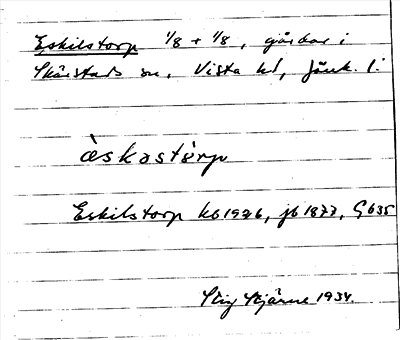 Eskilstorp 1/8 + 1/8, gårdar i
Skärstads sn, Vista hd, Jönk. l.
èskastòrp
Eskilstorp kb 1926, jb 1877, G 635
Stig Stjärne 1934.